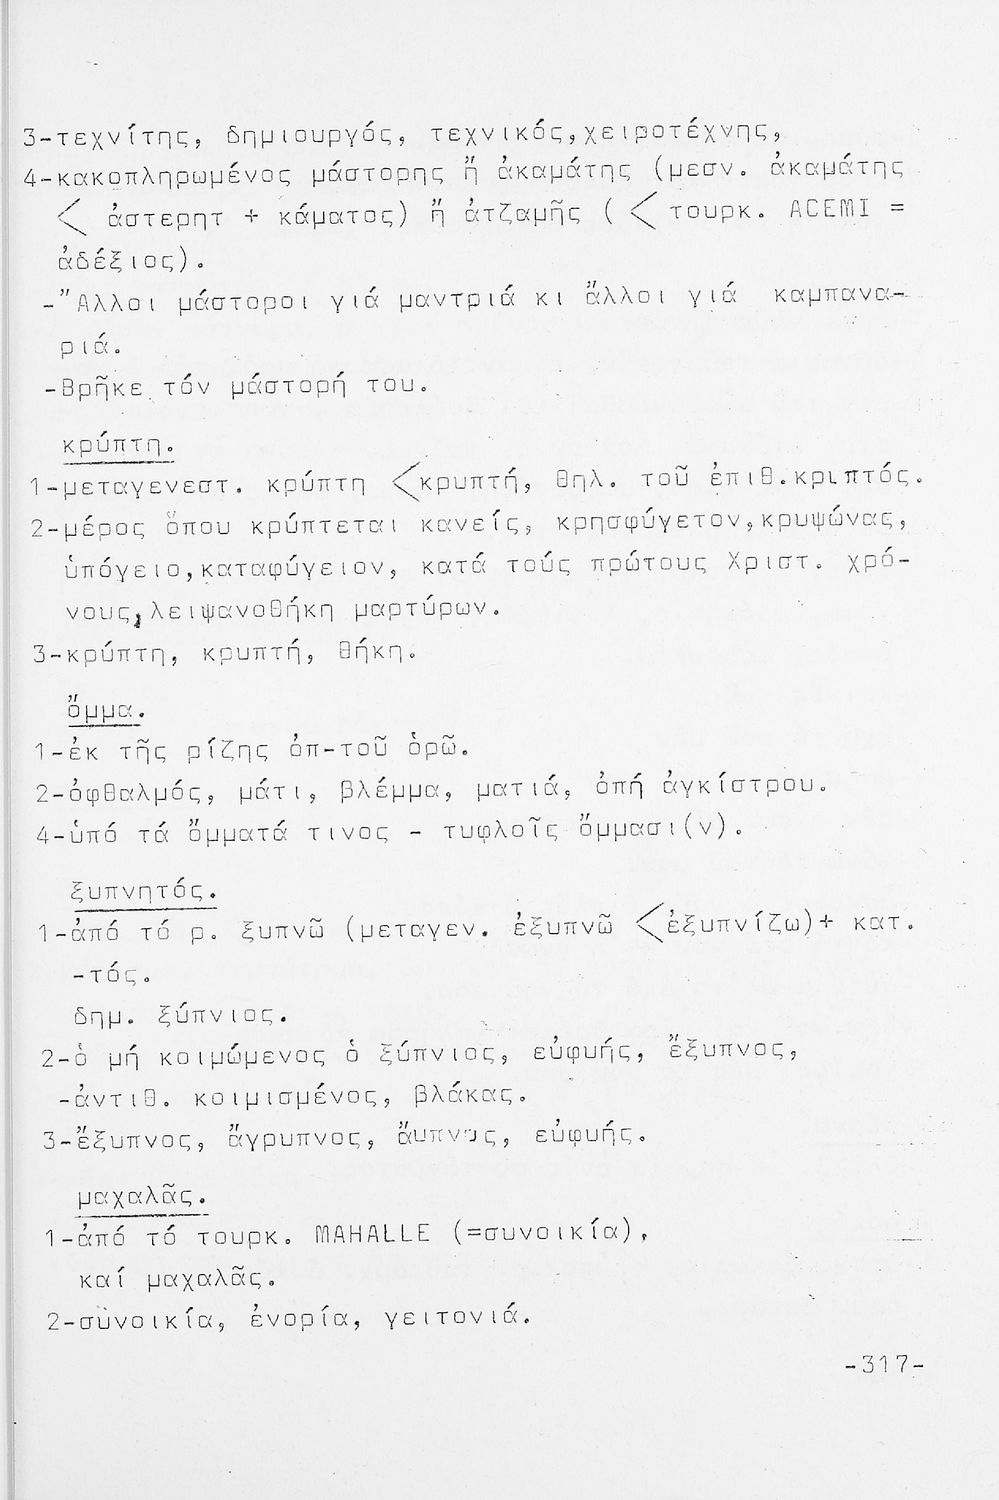 3-τεχνίτης, δημιουργός, τεχνικός,χειροτέχνης,
4-κακοπληρωμένος μάστορης ἤ ἀκαμάτης (μεσν. ἀκαμάτης
< ἀστερητ + κάματος) ἤ ἀτζαμῆς ( < τουρκ. ACEMI =
ἀδέξιος).
-"Αλλοι μάστοροι γιά μαντριά κι ἄλλοι γιά καμπανα-
ριά.
-Βρῆκε τόν μάστορή του.
κρύπτη.
1-μεταγενεστ. κρύπτη <κρυπτή, θηλ. τοῦ ἐπιθ.κριπτός.
2-μέρος ὅπου κρύπτεται κανείς, κρησφύγετον,κρυψώνας,
ὑπόγειο,καταφύγειον, κατά τούς πρώτους Χριστ. χρό-
νους,λειψανοθήκη μαρτύρων.
3-κρύπτη, κρυπτή, θήκη.
ὄμμα.
1-ἐκ τῆς ρίζης ὀπ-τοῦ ὁρῶ.
2-ὀφθαλμός, μάτι, βλέμμα, ματιά, ὀπή ἀγκίστρου.
4-ὑπό τά ὄμματά τινος - τυφλοῖς ὄμμασι(ν).
ξυπνητός.
1-ἀπό τό ρ. ξυπνῶ (μεταγεν. ἐξυπνῶ <ἐξυπνίζω)+ κατ.
-τός.
δημ. ξύπνιος.
2-ὁ μή κοιμώμενος ὁ ξύπνιος, εὐφυής, ἔξυπνος,
-ἀντιθ. κοιμισμένος, βλάκας.
3-ἔξυπνος, ἄγρυπνος, ἄυπνος, εὐφυής.
μαχαλᾶς.
1-ἀπό τό τουρκ. MAHALLE (=συνοικία),
καί μαχαλᾶς.
2-συνοικία, ἐνορία, γειτονιά.
-317-